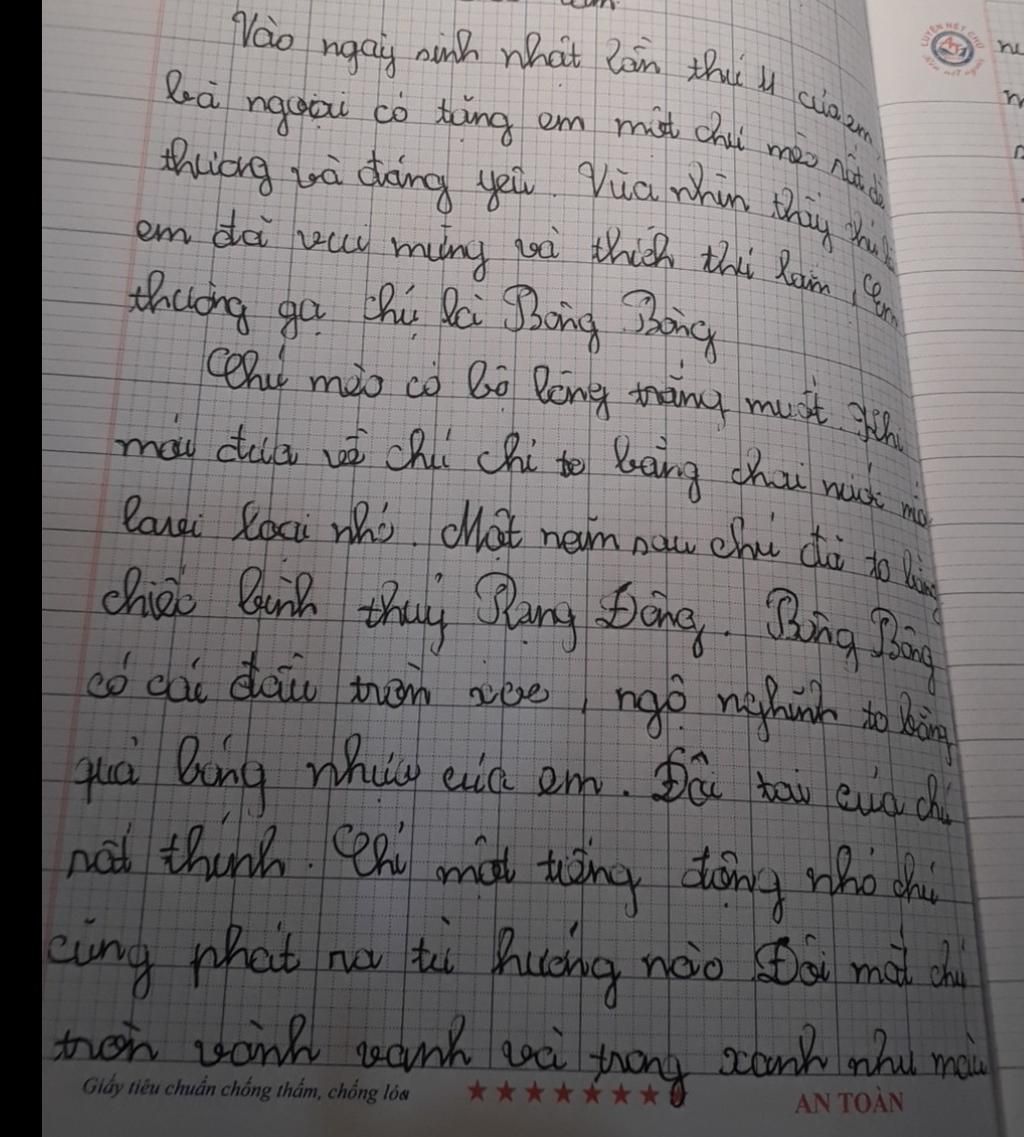 Vào ngày sinh nhật lần thứ 4 của em
bà ngoại có tặng em một chú mèo rất dễ
thương và đáng yêu. Vừa nhìn thấy chú
em đã vui mừng và thích thú lắm, em
thường gọi chú là Bông Bông
Chú mèo có bộ lông trắng muốt. Khi
mới đưa về chú chỉ to bằng chai nước
Lavi loại nhỏ. Một năm sau chú đã to bằng
chiếc bình thuỷ Rạng Đông. Bông Bông
có cái đầu tròn xoe, ngộ nghĩnh to bằng
quả bóng nhựa của em. Đôi tai của chú
rất thính. Chỉ một tiếng động nhỏ chú
cũng phát ra từ hướng nào Đôi mắt chú
tròn vành vạnh và trong xanh như màu
Giấy tiêu chuẩn chống thấm, chống lóa ★★★★★★★★ AN TOÀN
LUYỆN NÉT CHỮ